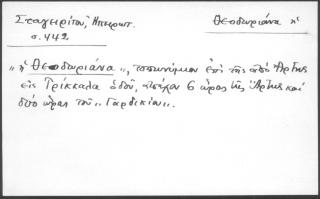 Σταγειρίτου, Ηπειρωτ. Θεοδωριάνα ἡ
σ. 442
„ἡ Θεοδωριάνα", τοπωνύμιον ἐπὶ τῆς ἀπὸ Ἄρτης
εἰς Τρίκκαλα ὁδοῦ, ἀπέχον 6 ὥρας τῆς Ἄρτης καὶ
δύο ὥρας τοῦ „Γαρδικίου".